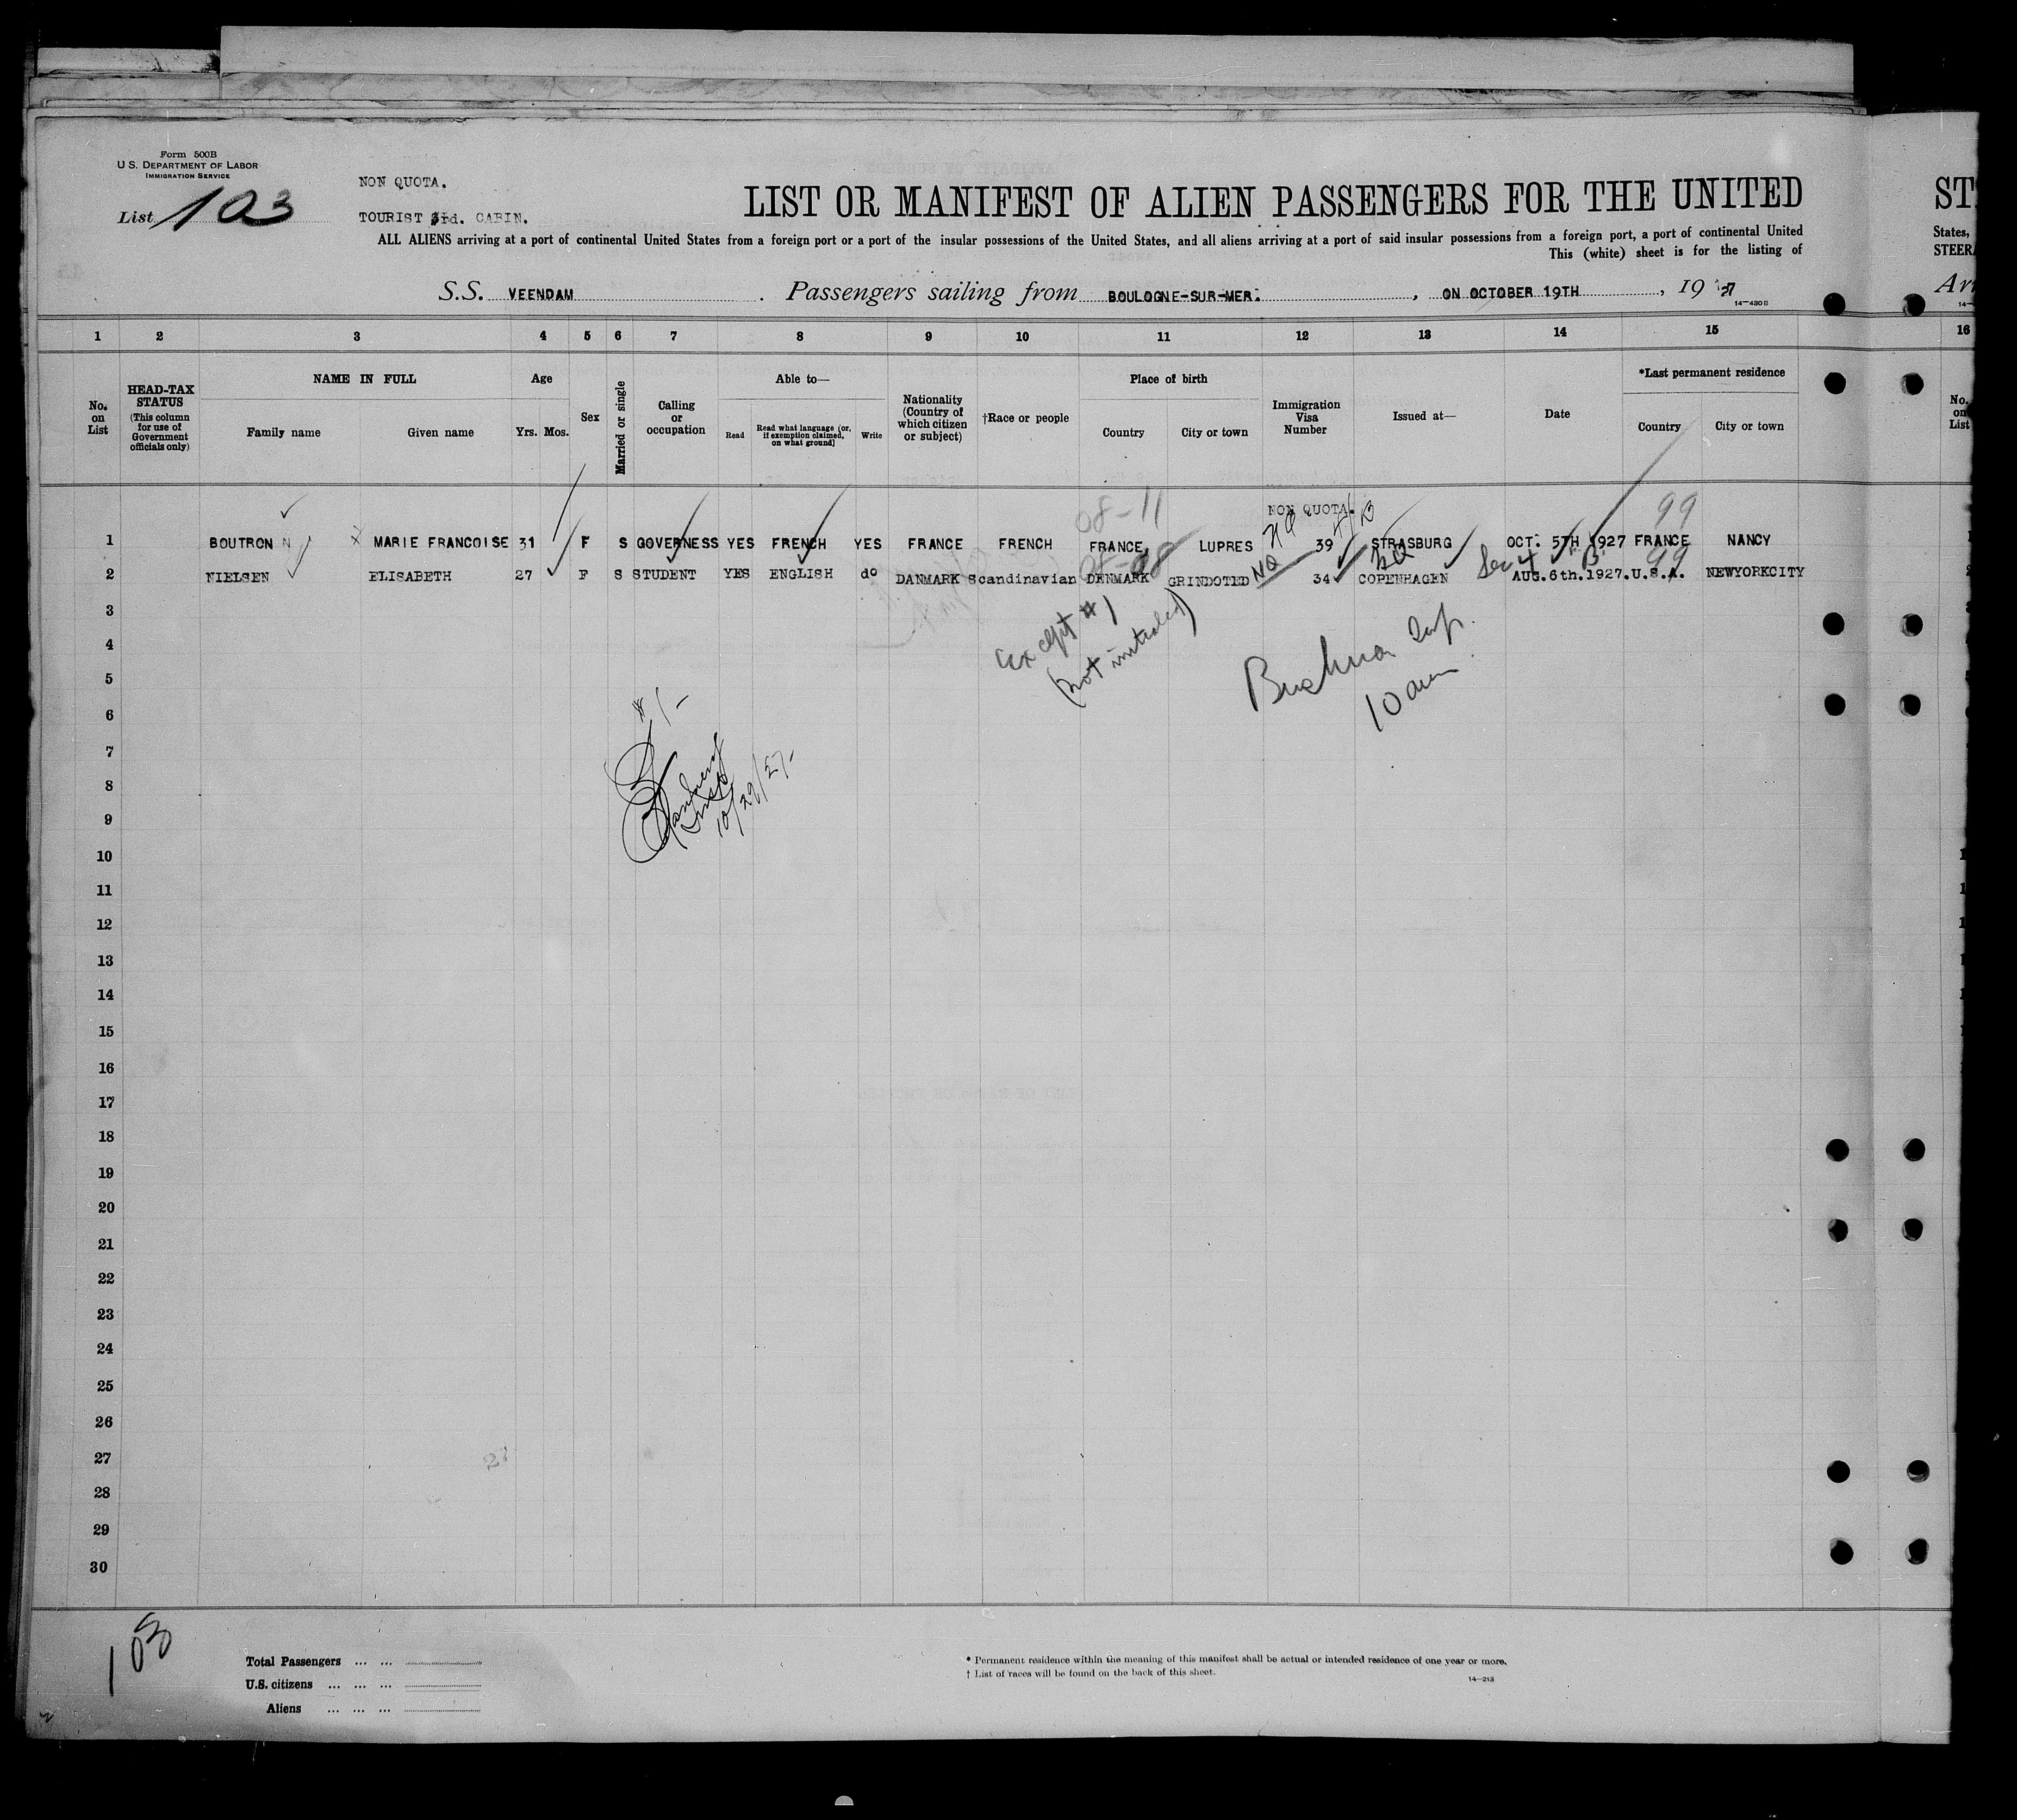 Form 500B
U S. DEPARTMENT OF LABOR
IMMIGRATION SERVICE
List 103
NON QUOTA.
TOURIST 3rd. CABIN.
LIST OR MANIFEST OF ALIEN PASSENGERS FOR THE UNITED
ST
ALL ALIENS arriving at a port of continental United States from a foreign port or a port of the insular possessions of the United States, and all aliens arriving at a port of said insular possessions from a foreign port, a port of continental United
States,
This (white) sheet is for the listing of
STEER
S.S. VEENDAM. Passengers sailing from BOULOGNE-SUR-MER. , ON OCTOBER 19TH , 1927
Arr
14—430B
1 2 3 4 5 6 7 8 9 10 11 12 13 14 15 16
No. on List
HEAD-TAX STATUS (This column for use of Government officials only)
NAME IN FULL
Family name Given name
Age
Yrs. Mos.
Sex
Married or single
Calling or occupation
Able to—
Read Read what language (or, if exemption claimed, on what ground) Write
Nationality (Country of which citizen or subject)
†Race or people
Place of birth
Country City or town
Immigration Visa Number
Issued at—
Date
*Last permanent residence
Country City or town
No. on List
08-11 NON QUOTA. 99
1 BOUTRON N X MARIE FRANCOISE 31 F S GOVERNESS YES FRENCH YES FRANCE FRENCH FRANCE, LUPRES NQ 39 STRASBURG OCT. 5TH 1927 FRANCE NANCY
08-08 NQ Sec 4 B 99
2 NIELSEN ELISABETH 27 F S STUDENT YES ENGLISH do DANMARK Scandinavian DENMARK GRINDOTED 34 COPENHAGEN AUG.6th.1927. U.S.A. NEWYORKCITY
3
4
except #1
(not initialed)
5
10 am
6
#1-
7
8
Insp
10/29/27-
9
10
11
12
13
14
15
16
17
18
19
20
21
22
23
24
25
26
27
27
28
29
30
103
Total Passengers ... ...
U.S. citizens ... ... ...
Aliens ... ... ...
* Permanent residence within the meaning of this manifest shall be actual or intended residence of one year or more.
† List of races will be found on the back of this sheet.
14—213